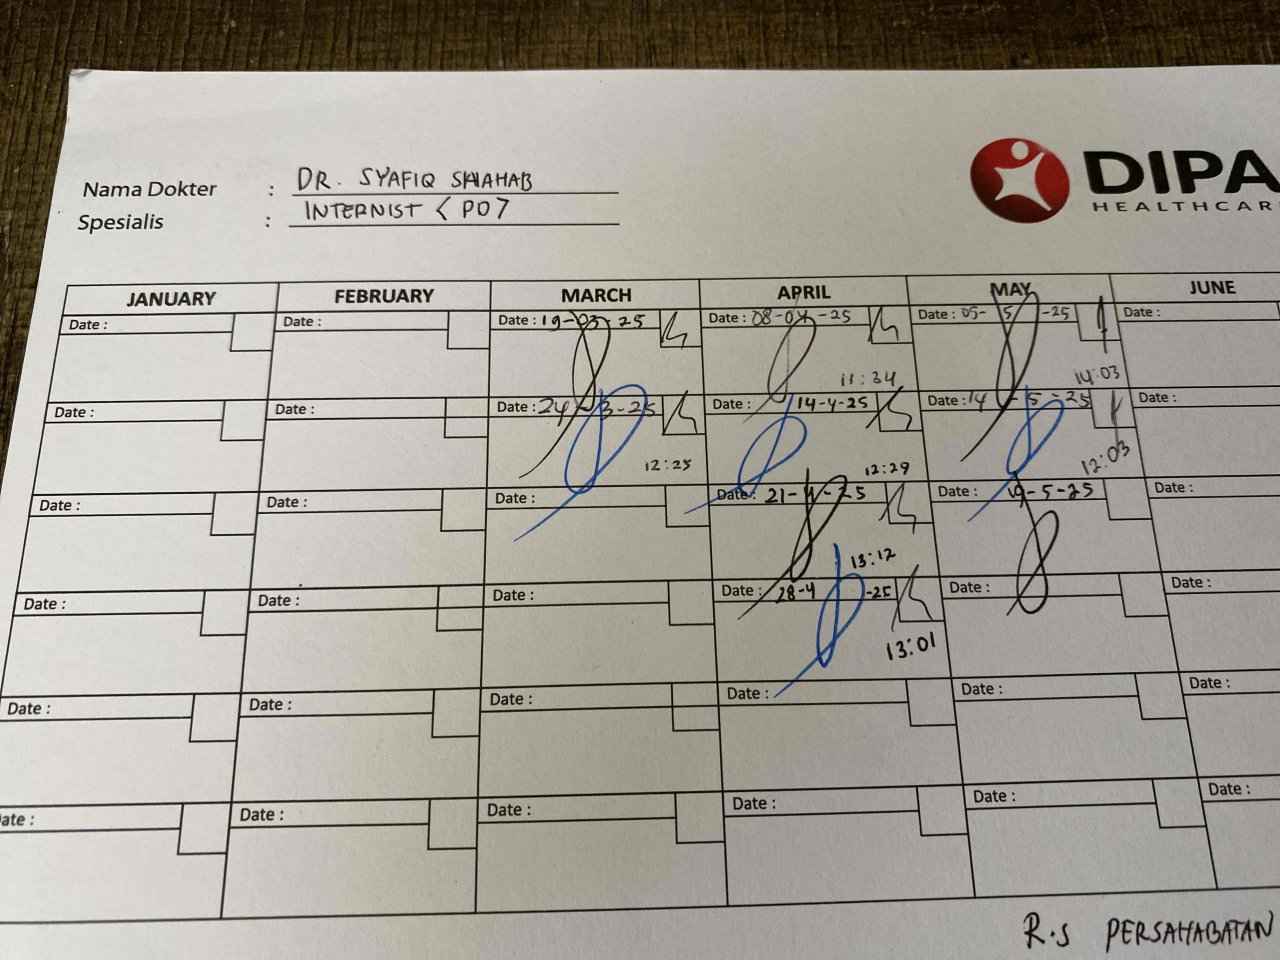 Nama Dokter : DR. SYAFIQ SHAHAB
Spesialis : INTERNIST < PD 7
DIPA
HEALTHCAR
JANUARY FEBRUARY MARCH APRIL MAY JUNE
Date : Date : Date : 19-03-25 Date : 08-04-25 Date : 05-5-25 Date :
11:34 14:03
Date : Date : Date : 24-3-25 Date : 14-4-25 Date : 14-5-25 Date :
12:25 12:29 12:03
Date : Date : Date : Date : 21-4-25 Date : 19-5-25 Date :
13:12
Date : Date : Date : Date : 28-4-25 Date : Date :
13:01
Date : Date : Date : Date : Date : Date :
ate : Date : Date : Date : Date : Date :
R.S PERSAHABATAN